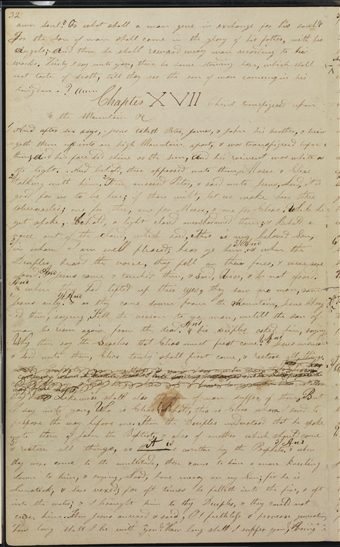 32
own soul? Or what shall a man give in exchange for his soul?
For the Son of man shall come in the glory of his father, with his
Angels; and then he shall reward every man according to his
works. Verily I say unto you, there be some standing here, which shall
not taste of death, till they see the son of man coming in his
Chapter XVII Christ transfigured upon
the Mountain &c
And after six days, Jesus
them up into an high Mountain apart, & was transfigured before
his face did shine as the sun, and his raiment was white as
the light. And behold, there appeared unto them Moses & Elias
talking with him, Then answered Peter, & said unto Jesus, Lord, it is
good for us to be here; if thou wilt, let us make here three
tabernacles; one for thee, one for Moses, & one for Elias. While he
yet spake, behold, a light cloud overshadowed them; & behold a
voice out of the cloud, which said, this is my beloved Son,
in whom I am well pleased; hear ye him. & when the
Disciples heard the voice, they fell on their faces, & were sore
came & touched them, & said, Arise, & be not afraid.
& when they had lifted up their eyes, they saw no man, save
Jesus only. & as they came down from the Mountain, Jesus
them, saying, Tell the vision to no man, until the son of
man be risen again from the dead. & his disciples asked him, saying,
Why then say the Scribes that Elias must first come? & Jesus answered
& said unto them, Elias truly shall first come, & restore all things
Likewise shall also suffer of them, But
I say unto you, Who is Elias? this is Elias whom I send to
prepare the way before me. Then the Disciples understood that he spake
unto them of John the Baptist, & also of another which should come
& restore all things, as it is written by the Prophets. & when
they were come to the multitude, there came to him a man kneeling
down to him, & saying, Lord, have mercy on my Son; for he is
lunatick, & sore vexed; for oft times he falleth into the fire, & oft
into the water, & I brought him to thy disciples, & they could not
cure him. Then Jesus answered & said, O faithless & perverse generation
how long shall I be with you? How long shall I suffer you? Bring